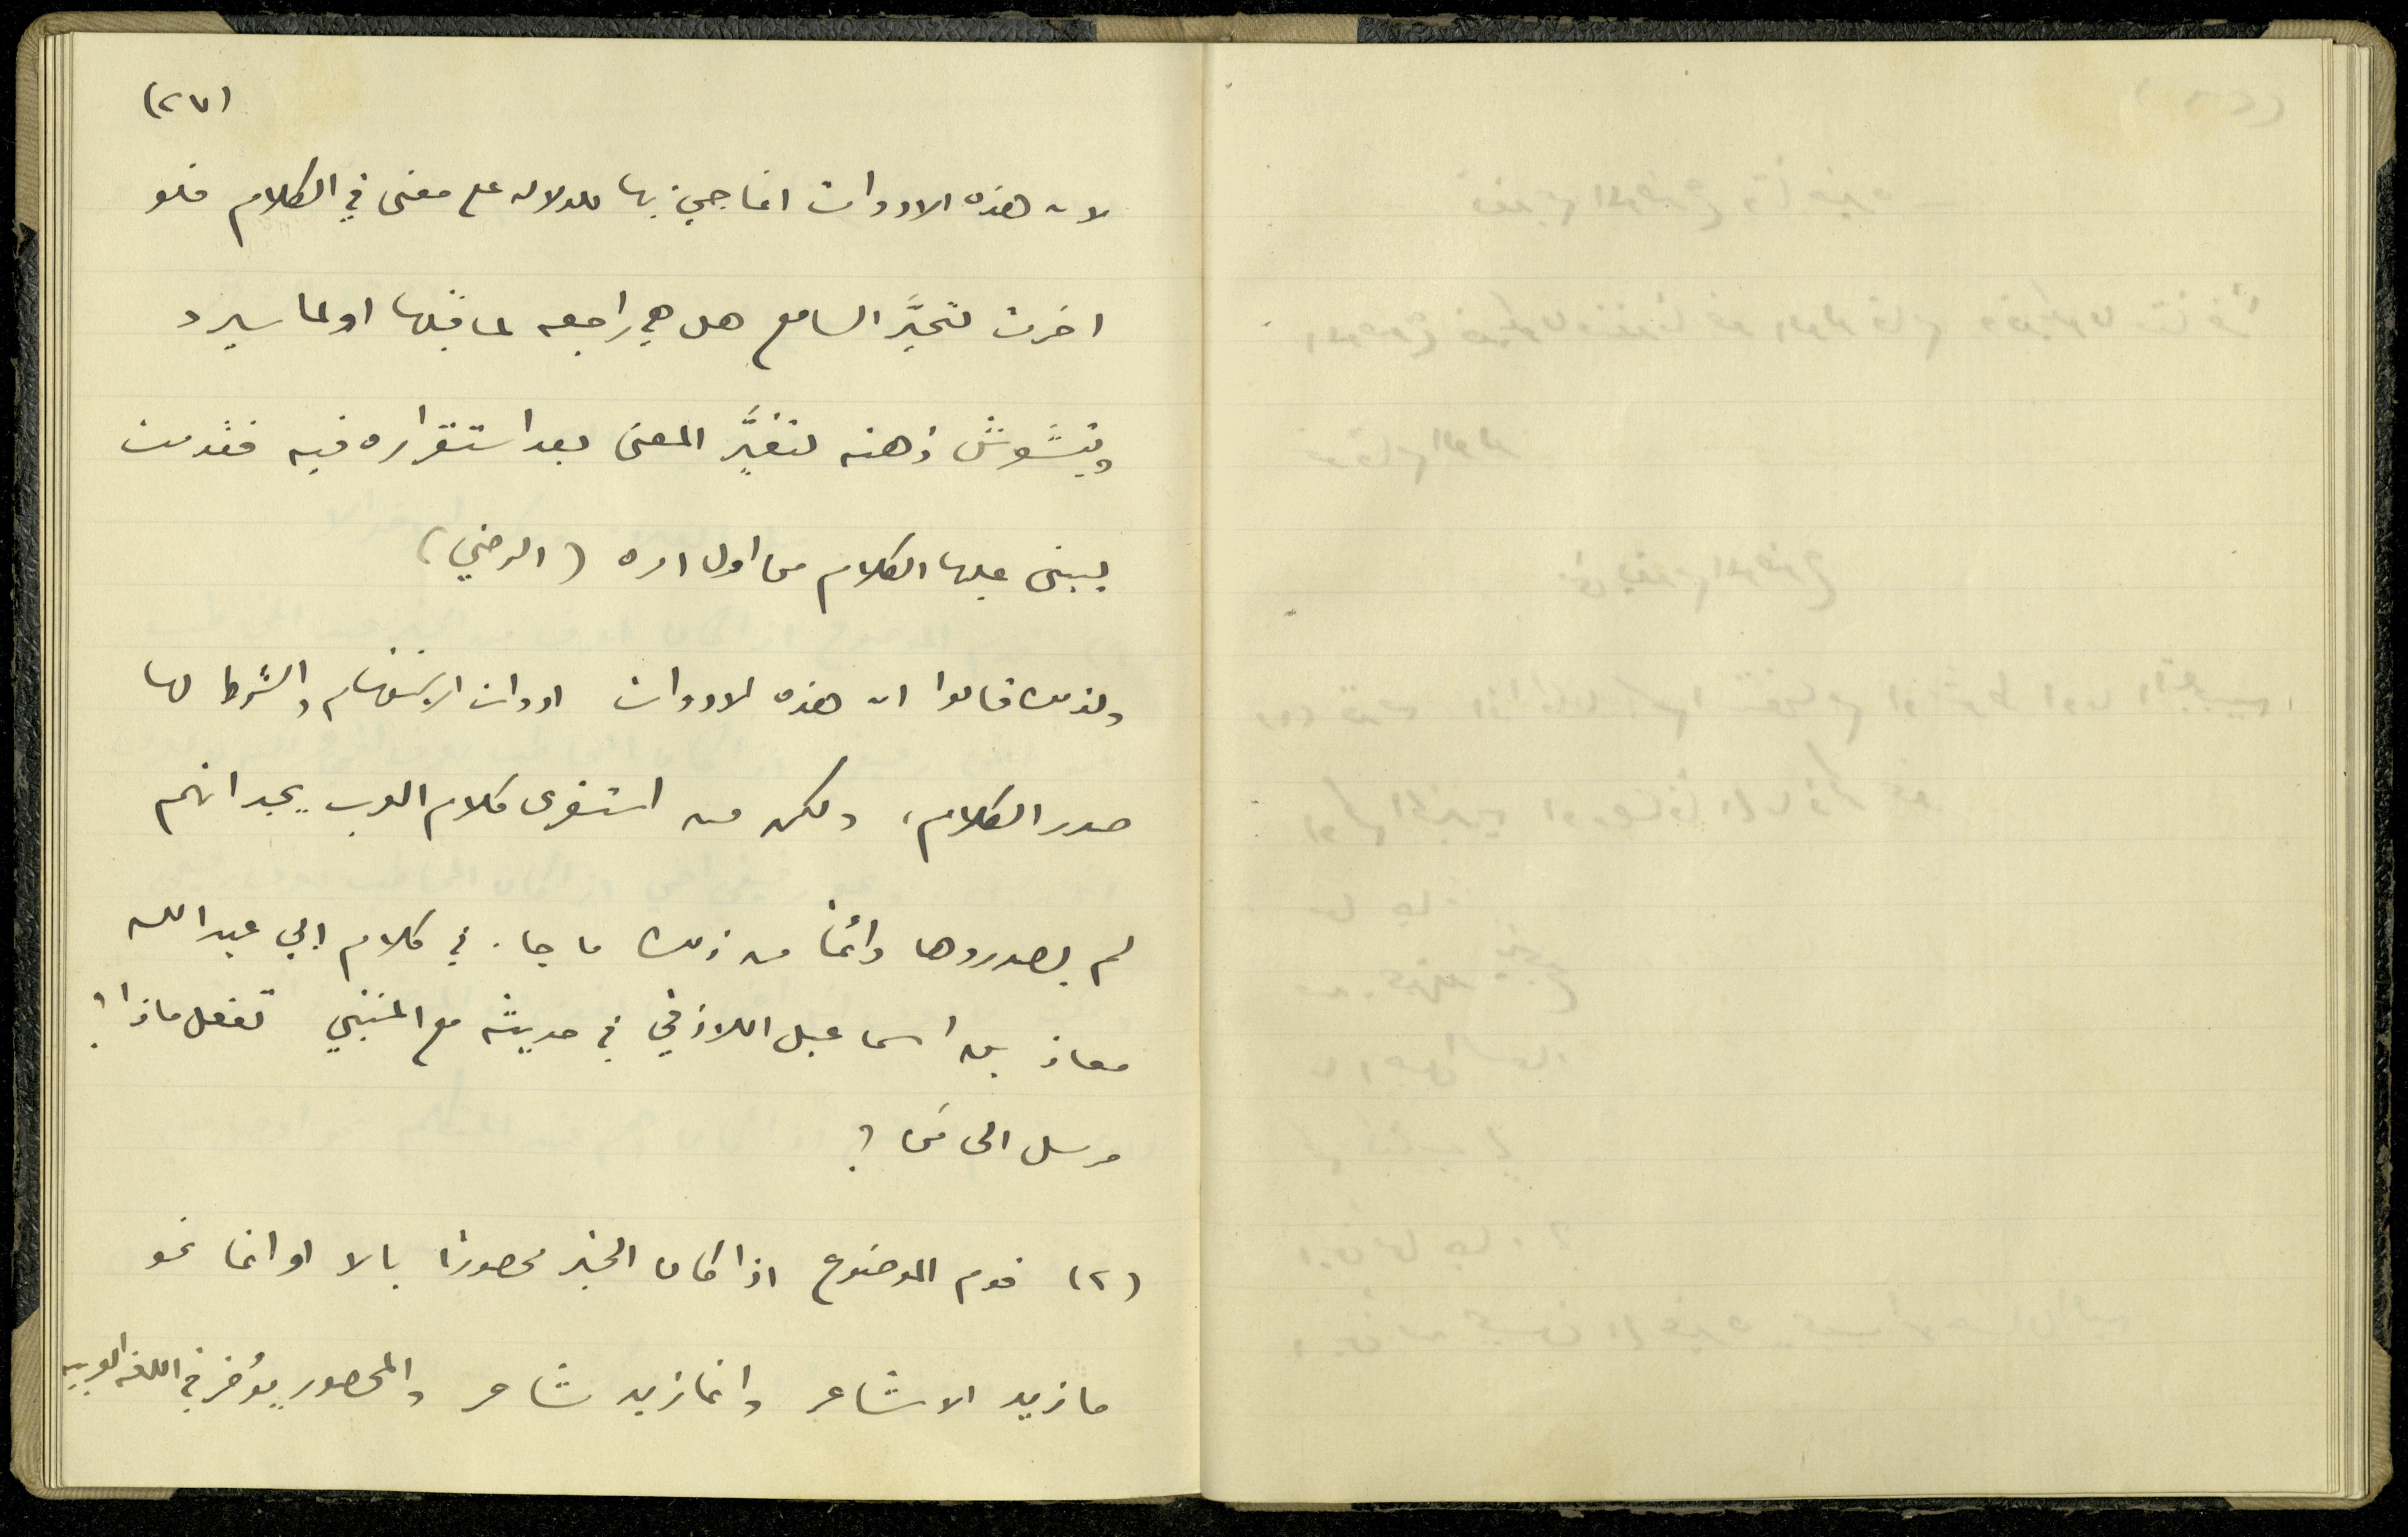 (٢٧)
لان هذه الادوات انما جيئ بها للدلاله على معنى في الكلام فلو
اخرت لتحيَّر السامع هل هي راجعه لما قبلها او لما سيرد
ويتشوش ذهنه لتغيُّر المعنى بعد استقراره فيه فقدمت
ليبنى عليها الكلام من اول امره (الرضي)
ولذلك قالوا ان هذه الادوات ادوات الاستفهام والشرط لها
صدر الكلام، ولكن من استقرى كلام العرب يجد انهم
لم يصدروها دائمًا من ذلك ما جاء في كلام ابي عبد الله
معاذ بن اسماعيل اللاذقي في حديثه مع المتنبي تفعل ماذا؟
مرسل الى مَن؟
(٢) قدم الموضوع اذا كان الخبر محصورًا بالا او انما نحو
ما زيد الا شاعر وانما زيد شاعر والمحصور يُؤخر في اللغه العربيه